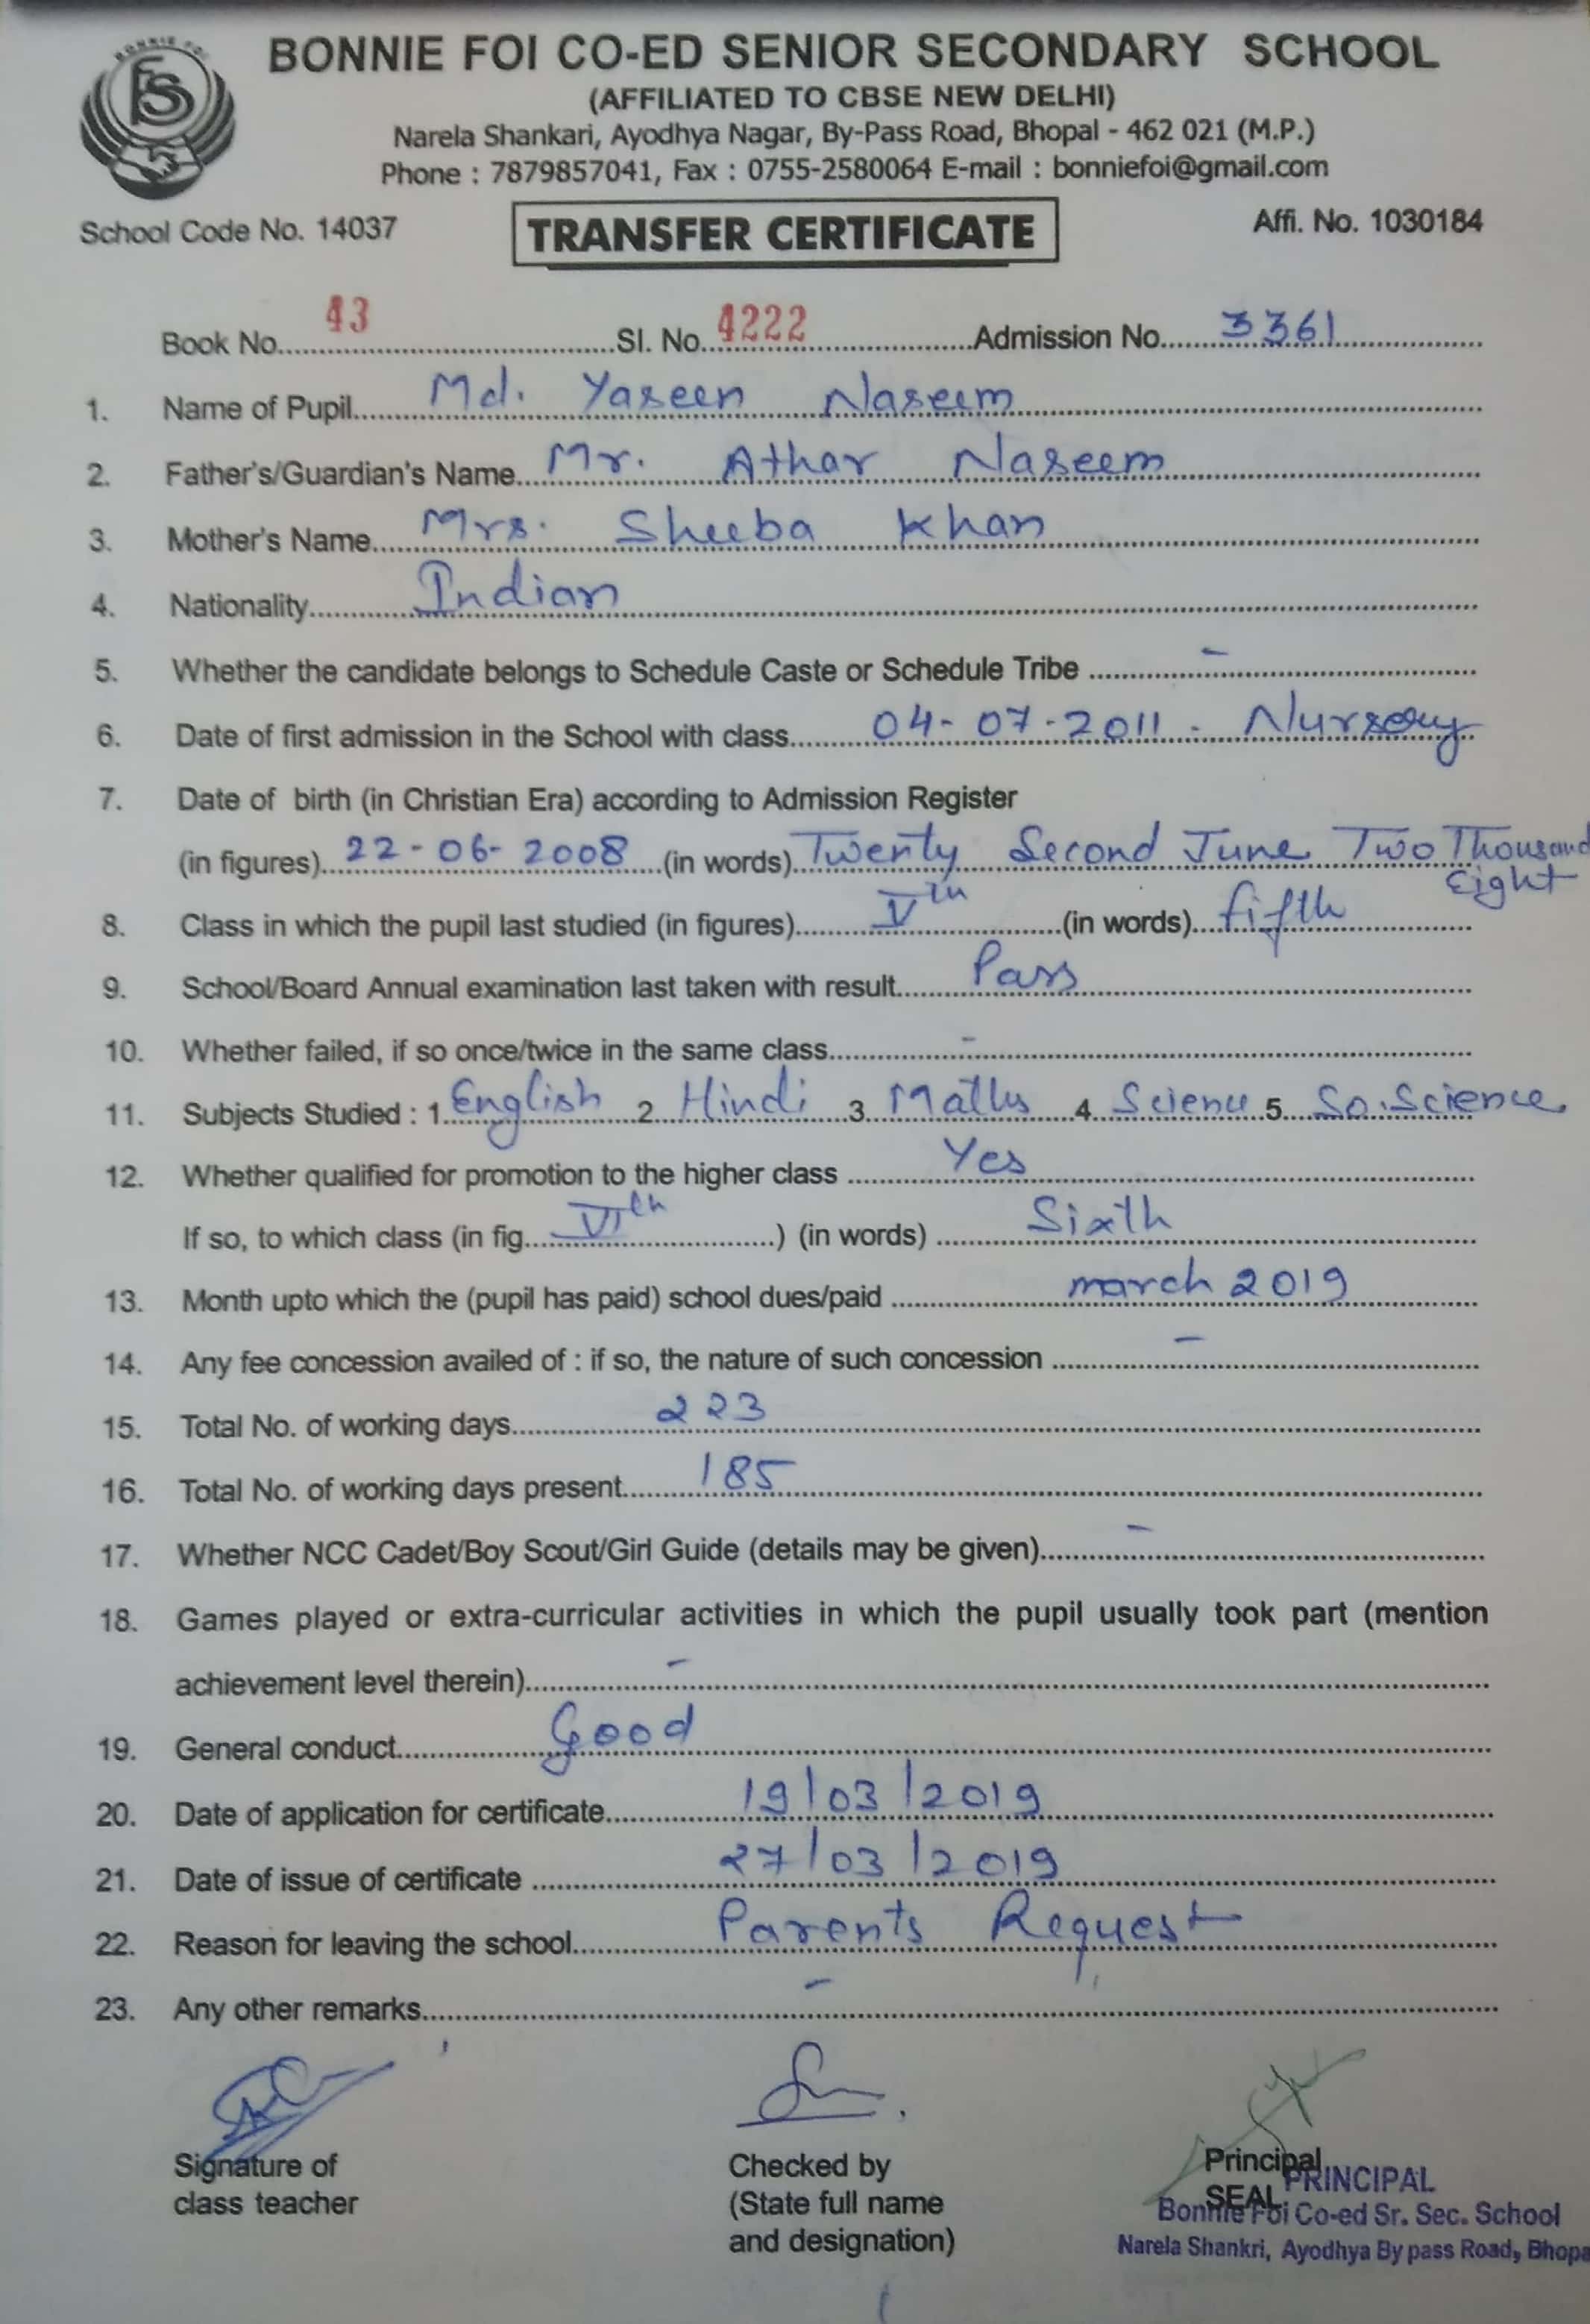 BONNIE FOI
FSS
BONNIE FOI CO-ED SENIOR SECONDARY SCHOOL
(AFFILIATED TO CBSE NEW DELHI)
Narela Shankari, Ayodhya Nagar, By-Pass Road, Bhopal - 462 021 (M.P.)
Phone : 7879857041, Fax : 0755-2580064 E-mail : bonniefoi@gmail.com
School Code No. 14037 TRANSFER CERTIFICATE Affi. No. 1030184
Book No. 43 Sl. No. 4222 Admission No. 3361
1. Name of Pupil Md. Yaseen Naseem
2. Father's/Guardian's Name Mr. Athar Naseem
3. Mother's Name Mrs. Sheeba Khan
4. Nationality Indian
5. Whether the candidate belongs to Schedule Caste or Schedule Tribe -
6. Date of first admission in the School with class 04-07-2011 - Nursery
7. Date of birth (in Christian Era) according to Admission Register
(in figures) 22-06-2008 (in words) Twenty Second June Two Thousand
Eight
8. Class in which the pupil last studied (in figures) Vth (in words) fifth
9. School/Board Annual examination last taken with result Pass
10. Whether failed, if so once/twice in the same class -
11. Subjects Studied : 1. English 2. Hindi 3. Maths 4. Science 5. So.Science
12. Whether qualified for promotion to the higher class Yes
If so, to which class (in fig. VIth ) (in words) Sixth
13. Month upto which the (pupil has paid) school dues/paid march 2019
14. Any fee concession availed of : if so, the nature of such concession -
15. Total No. of working days 223
16. Total No. of working days present 185
17. Whether NCC Cadet/Boy Scout/Girl Guide (details may be given) -
18. Games played or extra-curricular activities in which the pupil usually took part (mention
achievement level therein) -
19. General conduct Good
20. Date of application for certificate 19/03/2019
21. Date of issue of certificate 27/03/2019
22. Reason for leaving the school Parents Request
23. Any other remarks -
Signature of Checked by Principal PRINCIPAL
class teacher (State full name SEAL Bonnie Foi Co-ed Sr. Sec. School
and designation) Narela Shankri, Ayodhya By pass Road, Bhopa